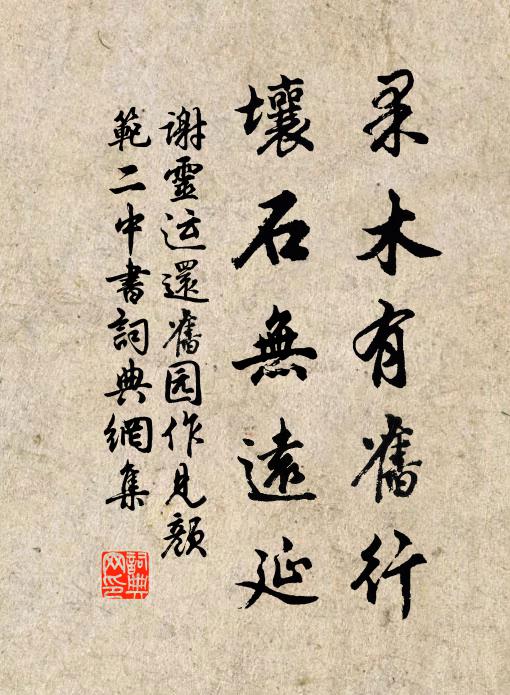 果木有舊行
壤石無遠延
謝靈运還舊园作見顏
範二中書詞典網集
詞典
网印